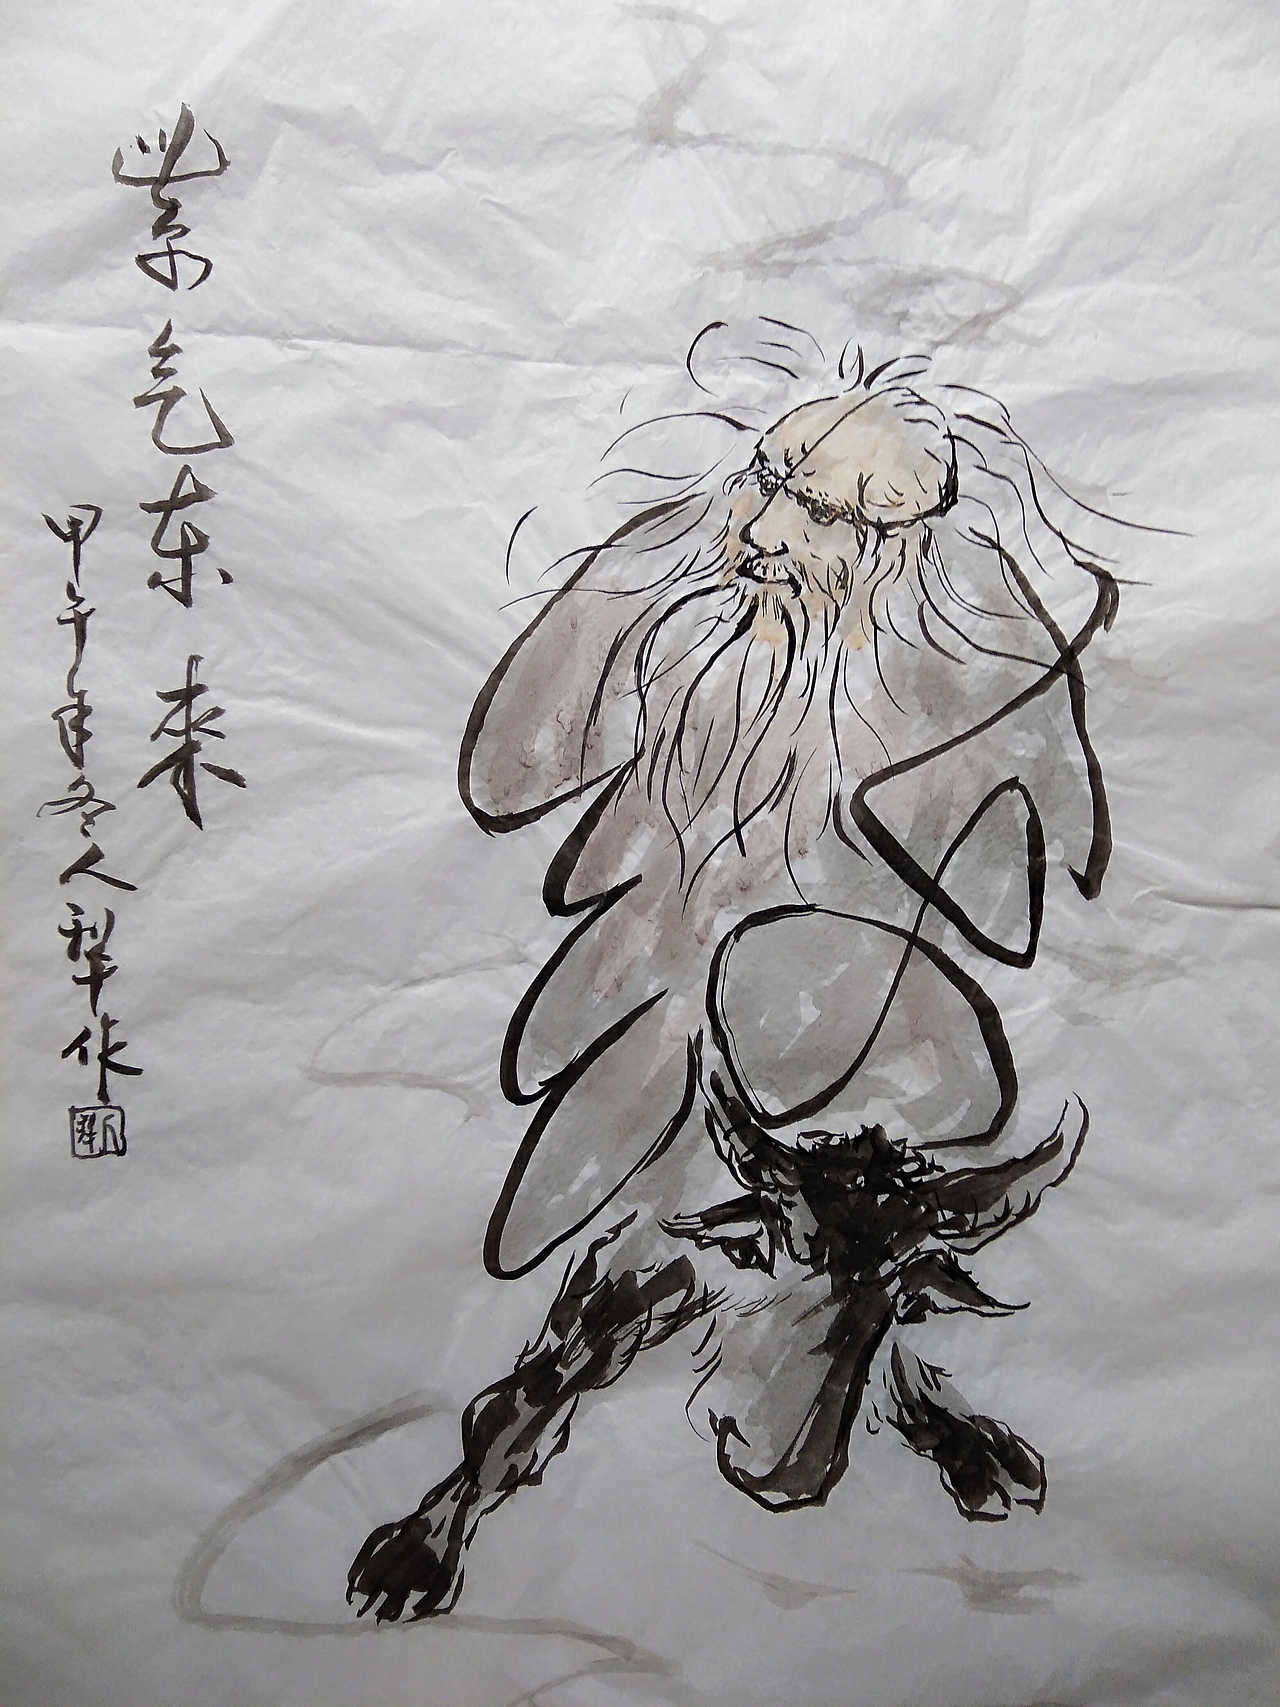 紫气东来
甲午年冬人犁作